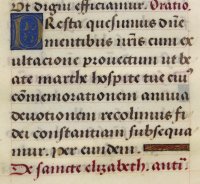 Ut digni efficiamur. Oratio.
Presta quesumus dñe
mentibus nr̄is cum ex
ultacione prouectum ut be
ate marthe hospite tue cui9
cōmemorationem annua
deuotionem recolimus fi
dei constantiam subsequa
mur. per eundem.
De sancte elizabeth. antiᵃ